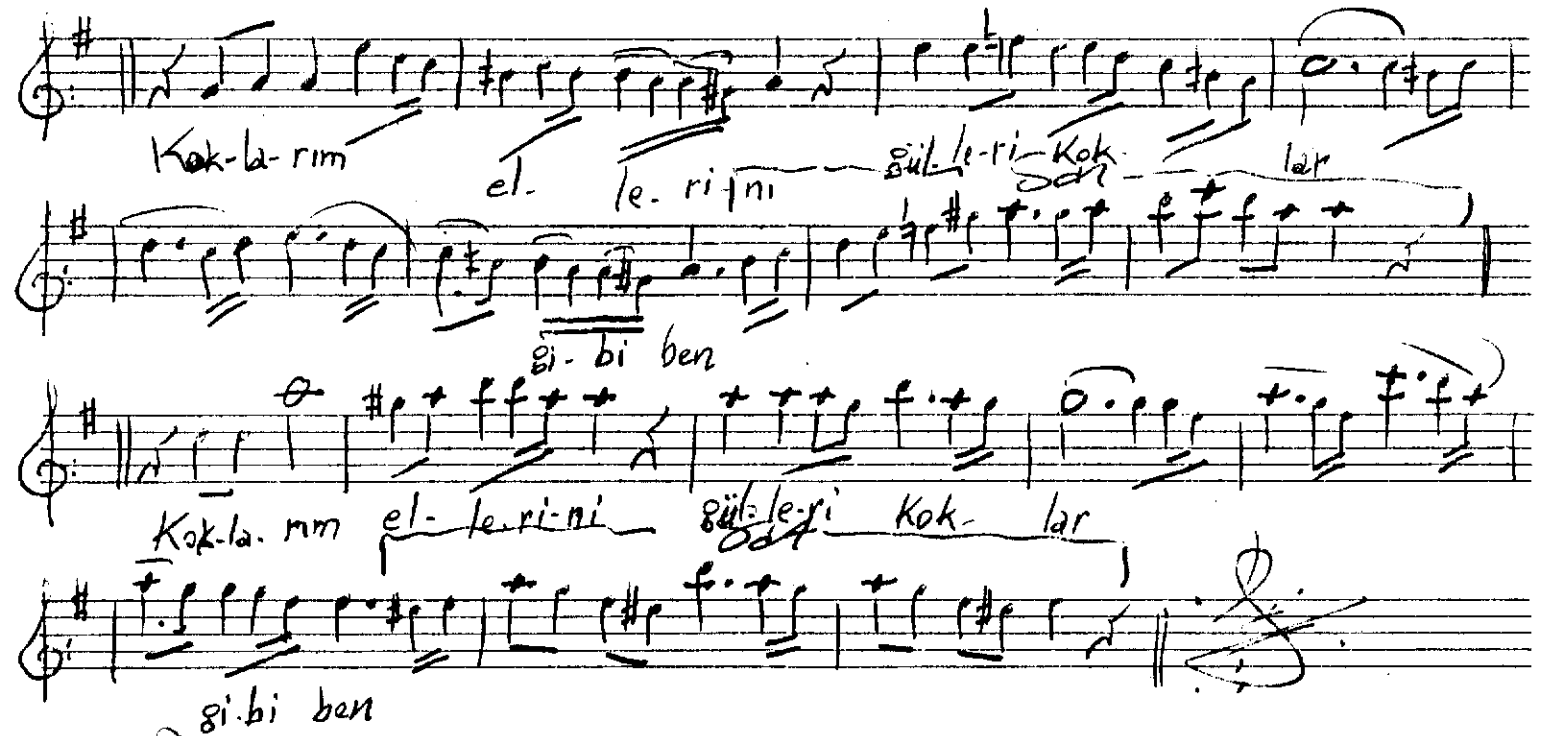 Kok-la-rım el- le-ri-ni gül-le-ri-Kok- lar
gi-bi ben
Kok-la-rım el- le-ri-ni gül-le-ri Kok- lar
gi-bi ben